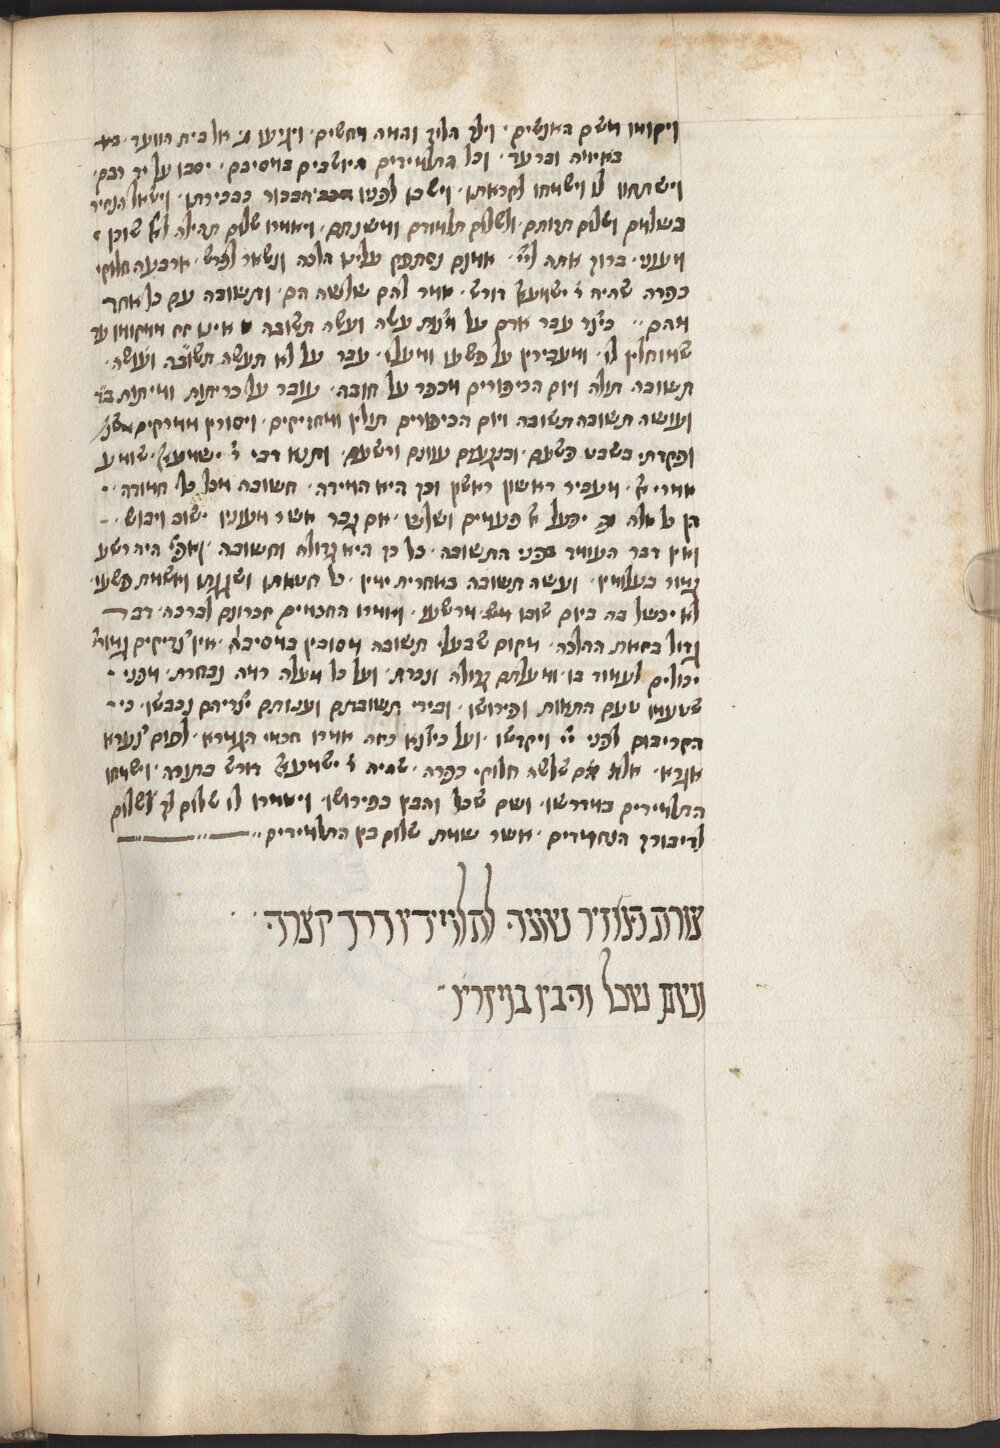 ויקומו משם האנשים · וילך הלוך והמה מחשים · ויגיעו אל בית הוועד · בא
באימה וברעד · וכל התלמידים היושבים במסיבם · יסבו על יד רבם ·
וישתחוו לו וישמחו לקראתו · וישבו לפניו הבכור כבכורתו · וישאל הנזיר
בשלומם ושלום תורתם · ולשלום תלמודם ומשנתם · ויאמרו שלום תהילה לאל שוכן
מעוני · ברוך אתה ליי · אמנם נסתפק עלינו הלכה ונשאר לפרש · ארבעה חלוקי
כפרה שהיה ר׳ ישמעאל דורש · אמר להם שלושה הם · ותשובה עם כל אחד
מהם ·· כיצד עבר אדם על מצות עשה ועשה תשובה אינו זז ממקומו עד
שמוחלין לו · ומעבירין על פשעו ומעלו · עבר על לא תעשה תשובה ועושה ·
תשובה תולה ויום הכיפורים מכפר על חובה · עובר על כריתות ומיתות ב״ד
ועושה תשובה תשובה ויום הכיפורים תולין ומחזיקים · ויסורין ממרקים שנ׳
ופקדתי בשבט פשעם · ובנגעים עונם ורשעם · ותנא דבי ר׳ ישמעאל · שומע
אמרי אל · מעביר ראשון ראשון וכך היא המידה · תשובה מכל כל חמודה ·
הן כל אלה יפעל אל פעמים ושלש · אם גבר אשר מעונו ישוב ויבוש ·
ואין דבר העומד בפני התשובה · כל כך היא גדולה וחשובה · ואפי׳ היה רשע
גמור בעלומיו · ועשה תשובה באחרית ימיו · כל חטאתו ושגגתו ואשמת פשעו ·
לא יכשל בה ביום שובו מרשעו · ואמרו החכמים זכרונם לברכה · דבר
גדול בזאת ההלכה · מקום שבעלי תשובה מסובין במסיבה · אין צדיקים גמורים
יכולים לעמוד בו · ומעלתם גדולה ונכרת · ועל כל מעלה רמה נבחרת · מפני
שטעמו טעם התאות ופירושו · ובידי תשובתם וענותם יצריהם נכבשו · כי
הקריבום לפני יי ויקדשו · ועל כיוצא בזה אמרו חכמי הגמרא · לפום צערא
אגרא · אלה הם שלשה חלוקי כפרה · שהיה ר׳ ישמעאל דורש בתורה · וישמחו
התלמידים במדרשו · ושום שכל והבין בפירושו · ויאמרו לו שלום לך ולשלום
לדיבורך הנחמדים · אשר שמת שלום בין התלמידים ··
צורת הנזיר שונה לתלמידיו דרך קצרה ·
ושום שכל והבין במקרא ··